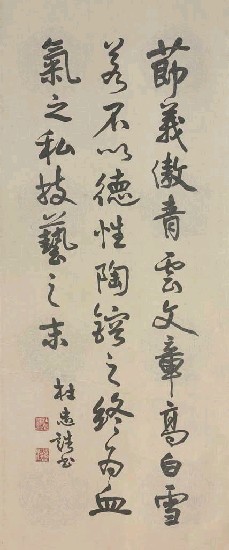 節義傲青雲文章高白雪
若不以德性陶鎔之終為血
氣之私技藝之末
杜忠誥書